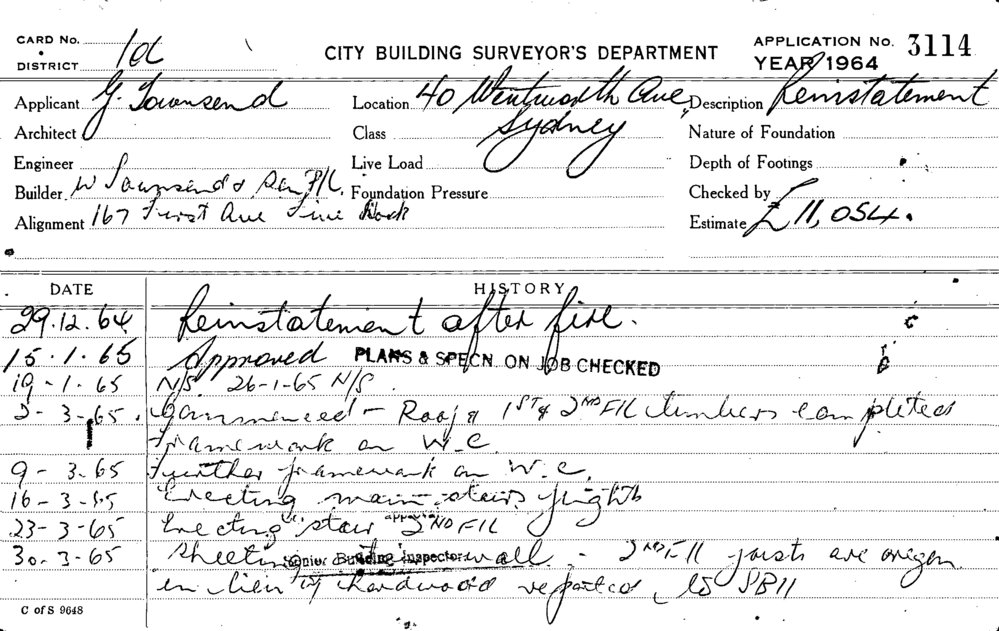 CARD No. 1d CITY BUILDING SURVEYOR'S DEPARTMENT APPLICATION No. 3114
DISTRICT YEAR 1964
Applicant G. Townsend Location 40 Wentworth Ave, Description Reinstatement
Architect Class Sydney Nature of Foundation
Engineer Live Load Depth of Footings
Builder W Townsend & Son P/L. Foundation Pressure Checked by
Alignment 167 First Ave Five Dock Estimate £11,054.
DATE HISTORY
29.12.64 Reinstatement after fire.
15.1.65 Approved PLANS & SPECN. ON JOB CHECKED
19-1-65 N/S 26-1-65 N/S.
2-3-65. Commenced - Roof & 1ST & 2ND Fl timbers completed
Framework on W.C.
9-3-65 Further framework on W.C.
16-3-65 Erecting main stairs flights
23-3-65 Erecting stair 2ND Fl
30.3-65 Sheeting wall - 2ND Fl joists are oregon
Senior Building Inspector
in lieu of hardwood reported to SBI
C of S 9648